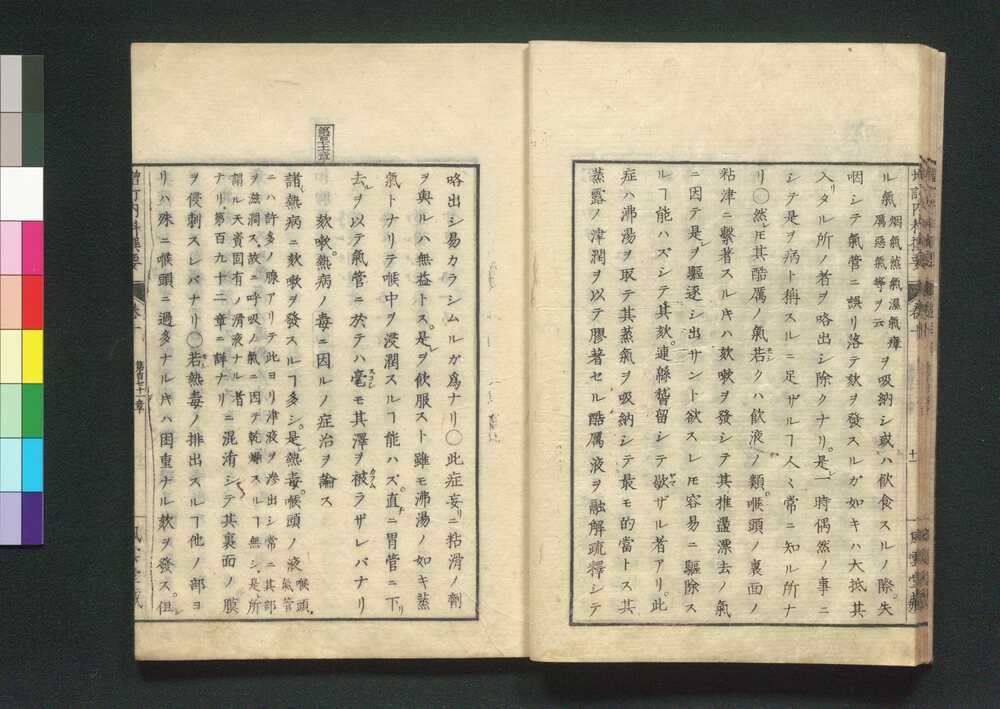 ル氣 烟氣蒸氣濕氣瘴厲惡氣等ヲ云 ヲ吸納シ或ハ飲食スルノ際失
咽シテ氣管ニ誤リ落テ欬ヲ發スルガ如キハ大抵其
入リタル所ノ者ヲ略出シ除クナリ是レ一時偶然ノ事ニ
シテ是ヲ病ト稱スルニ足ザルヿ人々常ニ知ル所ナ
リ○然レ𪜈其酷厲ノ氣若クハ飲液ノ類喉頭ノ裏面ノ
粘津ニ繫著スル𪜈ハ欬嗽ヲ發シテ其推盪漂去ノ氣
ニ因テ是ヲ驅逐シ出サント欲スレ𪜈容易ニ驅除ス
ルヿ能ハズシテ其欬連緜稽留シテ歇ザル者アリ此
症ハ沸湯ヲ取テ其蒸氣ヲ吸納シテ最モ的當トス其
蒸露ノ津潤ヲ以テ膠著セル酷厲液ヲ融解疏釋シテ
增訂内科撰要
卷一
十一
風雲堂藏
略出シ易カラシムルガ爲ナリ○此症妄リニ粘滑ノ劑
ヲ與ルハ無益トス是ヲ飲服スト雖モ沸湯ノ如キ蒸
氣トナリテ喉中ヲ浸潤スルヿ能ハズ直チニ胃管ニ下リ
去ルヲ以テ氣管ニ於テハ毫モ其澤ヲ被ラザレバナリ
第百七十一章
欬嗽熱病ノ毒ニ因ルノ症治ヲ論ス
諸熱病ニ欬嗽ヲ發スルヿ多シ是レ熱毒喉頭ノ液 喉頭氣管
ニハ許多ノ腺アリテ此ヨリ津液ヲ滲出シ常ニ其部
ヲ滋潤ス故ニ呼吸ノ氣ニ因テ乾燥スルヿ無シ是所
謂ル天資固有ノ滑液ナル者
ナリ第百九十二章ニ詳ナリ ニ混淆シテ其裏面ノ膜
ヲ侵刺スレバナリ○若シ熱毒ノ排出スルヿ他ノ部ヨ
リハ殊ニ喉頭ニ過多ナル𪜈ハ困重ナル欬ヲ發ス但
增訂内科撰要
卷一
第百七十一章